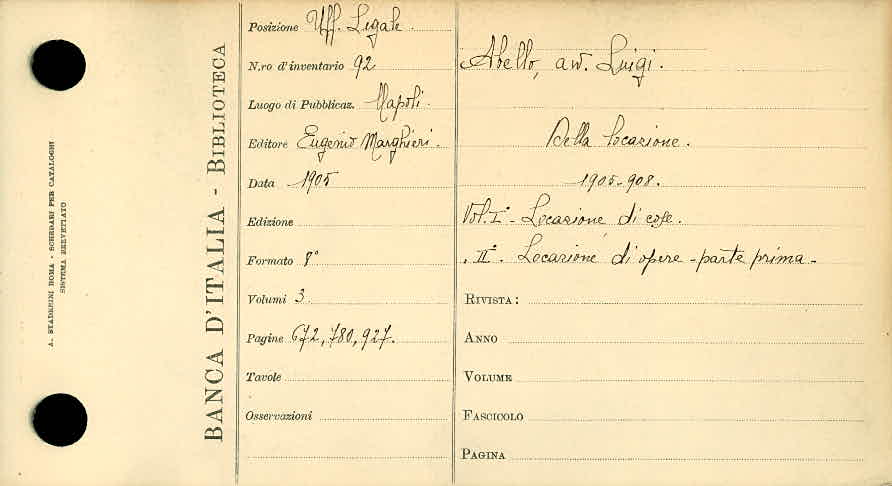 A. STADERINI ROMA - SCHEDARI PER CATALOGHI
SISTEMA BREVETTATO
BANCA D'ITALIA - BIBLIOTECA
Posizione Uff. Legale.
N.ro d'inventario 92
Luogo di Pubblicaz. Napoli.
Editore Eugenio Marghieri.
Data 1905
Edizione
Formato 8°
Volumi 3
Pagine 672, 780, 927.
Tavole
Osservazioni
Abello, avv. Luigi.
Della locazione.
1905-908.
Vol. I° - Locazione di cose.
" II° - Locazione di opere - parte prima -
RIVISTA:
ANNO
VOLUME
FASCICOLO
PAGINA